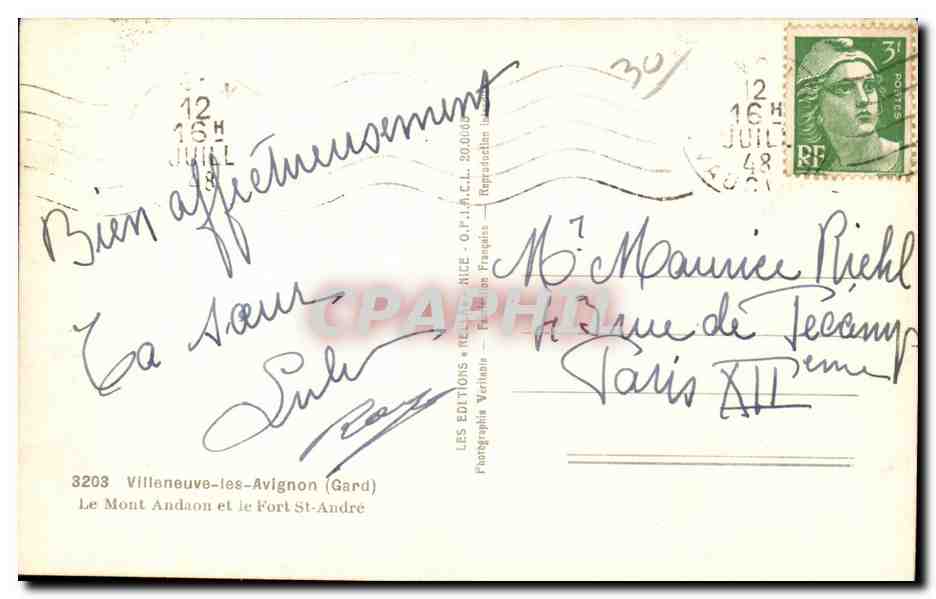 30
12
16H
JUILL
48
12
16H
JUILL
48
3F
POSTES
RF
Bien affectueusement
Ta sœur
CPAPHIL
LES EDITIONS « - NICE - O.P.I.A.C.L. 20.0066
Photographie Véritable — Fabrication Française — Reproduction
Mr. Maurice Riehl
43 rue de Fécamp
Paris XIIeme
3203 Villeneuve-les-Avignon (Gard)
Le Mont Andaon et le Fort St-André